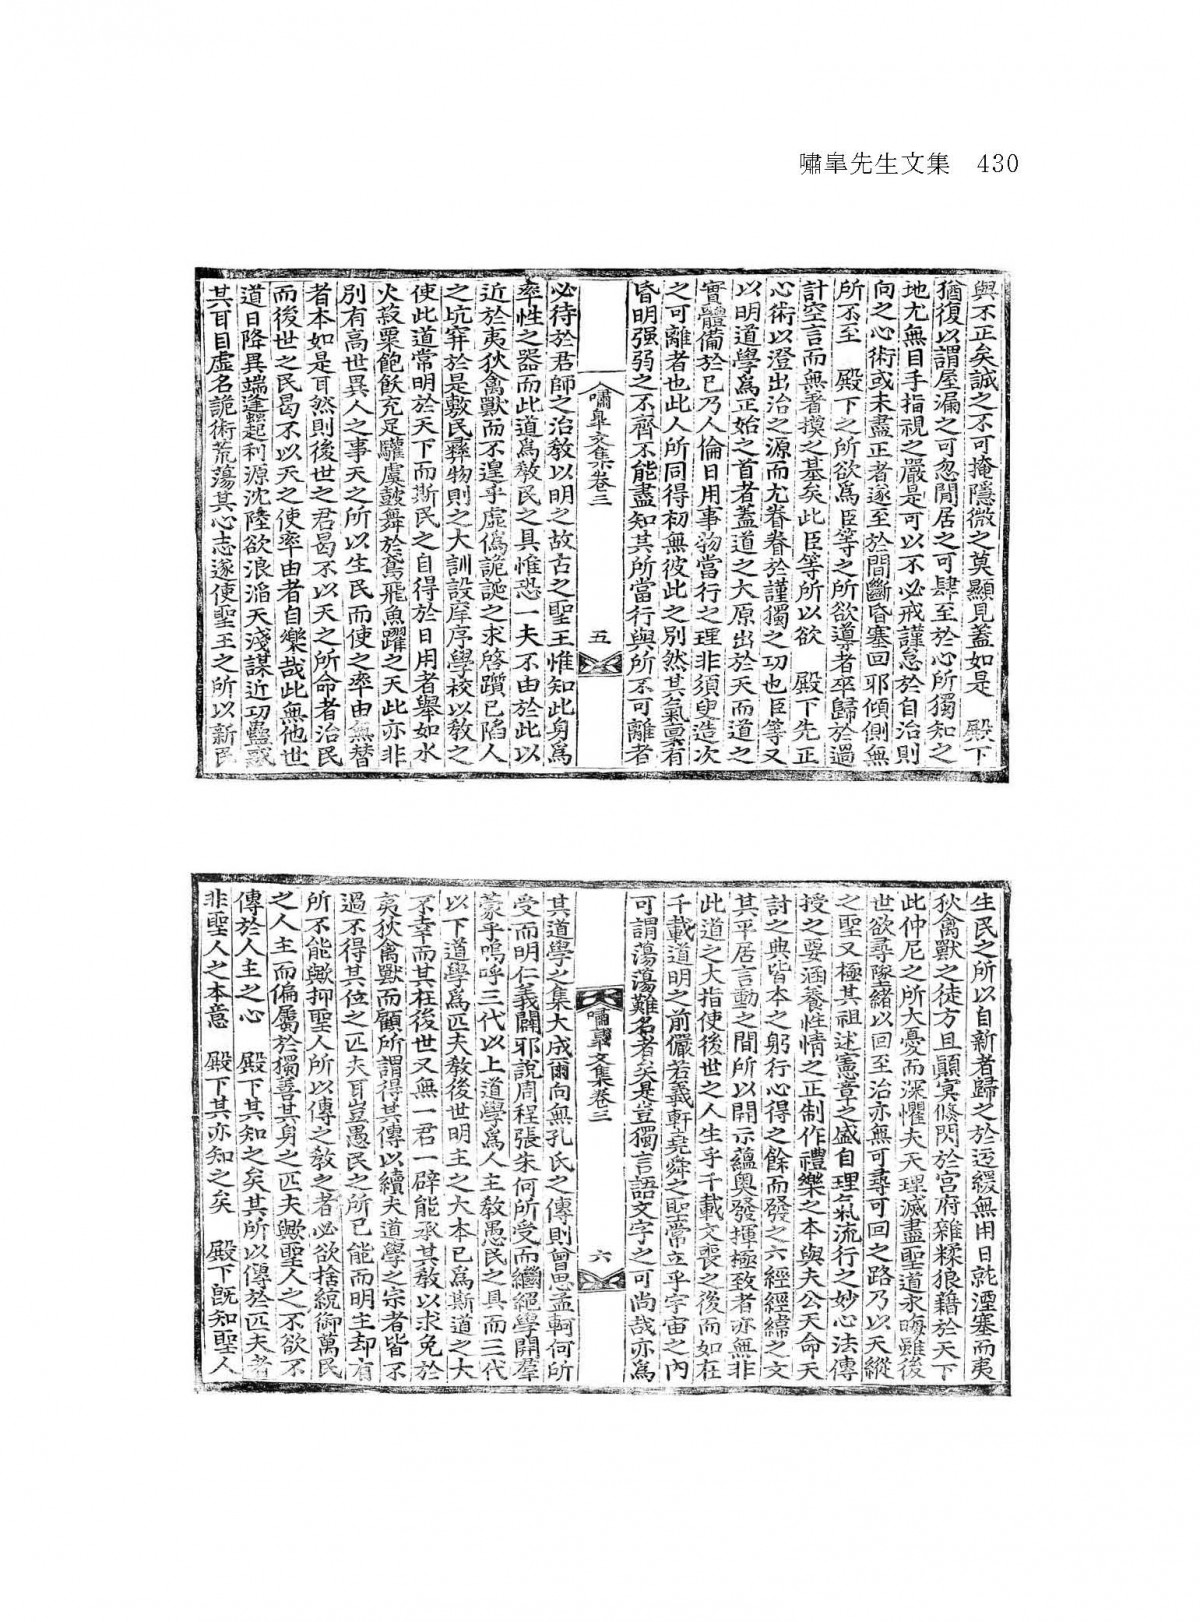 嘯皐先生文集 430
與不正矣誠之不可掩隱微之莫顯見蓋如是 殿下
猶復以謂屋漏之可忽閒居之可肆至於心所獨知之
地尤無目手指視之嚴是可以不必戒謹怠於自治則
向之心術或未盡正者遂至於間斷昏塞回耶傾側無
所不至 殿下之所欲爲臣等之所欲導者卒歸於過
計空言而無著摸之基矣此臣等所以欲 殿下先正
心術以澄出治之源而尤眷眷於謹獨之功也臣等又
以明道學爲正始之首者蓋道之大原出於天而道之
實體備於已乃人倫日用事物當行之理非須臾造次
之可離者也此人所同得初無彼此之別然其氣稟有
昏明强弱之不齊不能盡知其所當行與所不可離者
嘯皐文集卷三 五
必待於君師之治敎以明之故古之聖王惟知此身爲
率性之器而此道爲敎民之具惟恐一夫不由於此以
近於夷狄禽獸而不遑乎虛僞詭誕之求啓躓已陷人
之坑穽於是敷民彛物則之大訓設庠序學校以敎之
使此道常明於天下而斯民之自得於日用者擧如水
火菽粟飽飫充足驩虞鼓舞於鳶飛魚躍之天此亦非
別有高世異人之事天之所以生民而使之率由無替
者本如是耳然則後世之君曷不以天之所命者治民
而後世之民曷不以天之使率由者自樂哉此無他世
道日降異端蓬起利源沈隆欲浪滔天淺謀近功蠱惑
其耳目虛名詭術荒蕩其心志遂使聖王之所以新民
生民之所以自新者歸之於迂緩無用日就湮塞而夷
狄禽獸之徒方且顚冥倏閃於宮府雜糅狼藉於天下
此仲尼之所大憂而深懼夫天理滅盡聖道永晦雖後
世欲尋墜緖以回至治亦無可尋可回之路乃以天縱
之聖又極其祖述憲章之盛自理氣流行之妙心法傳
授之要涵養性情之正制作禮樂之本與夫公天命天
討之典皆本之躬行心得之餘而發之六經經緯之文
其平居言動之間所以開示蘊奧發揮極致者亦無非
此道之大指使後世之人生乎千載文喪之後而如在
千載道明之前儼若羲軒堯舜之聖常立乎宇宙之內
可謂蕩蕩難名者矣是豈獨言語文字之可尙哉亦爲
嘯皐文集卷三 六
其道學之集大成爾向無孔氏之傳則曾思孟軻何所
受而明仁義闢邪說周程張朱何所受而繼絕學開羣
蒙乎嗚呼三代以上道學爲人主敎愚民之具而三代
以下道學爲匹夫敎後世明主之大本已爲斯道之大
不幸而其在後世又無一君一辟能承其敎以求免於
夷狄禽獸而顧所謂得其傳以續夫道學之宗者皆不
過不得其位之匹夫耳豈愚民之所已能而明主却有
所不能歟抑聖人所以傳之敎之者必欲捨統御萬民
之人主而偏屬於獨善其身之匹夫歟聖人之不欲不
傳於人主之心 殿下其知之矣其所以傳於匹夫者
非聖人之本意 殿下其亦知之矣 殿下旣知聖人